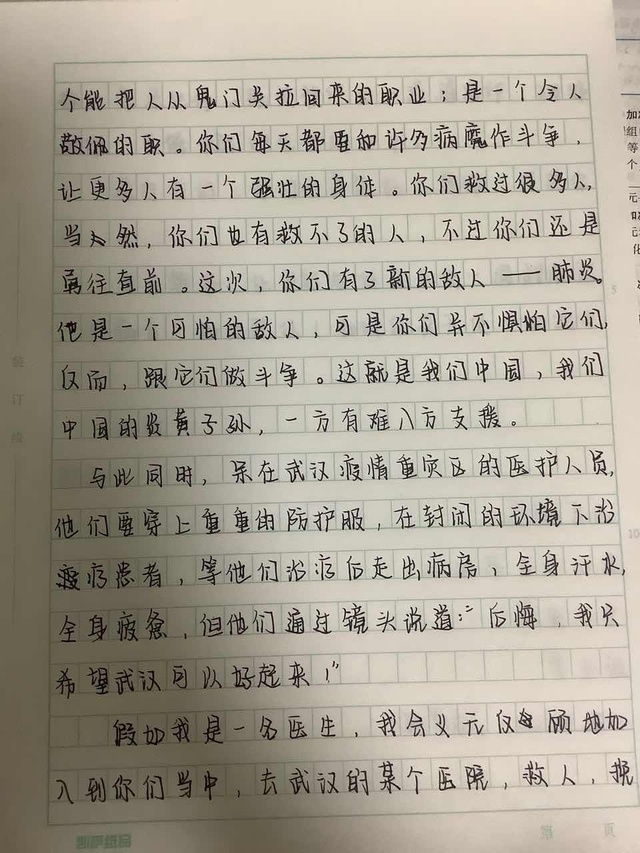 个能把人从鬼门关拉回来的职业；是一个令人
敬佩的职。你们每天都要和许多病魔作斗争，
让更多人有一个强壮的身体。你们救过很多人，
当然，你们也有救不了的人，不过你们还是
勇往直前。这次，你们有了新的敌人——肺炎。
他是一个可怕的敌人，可是你们并不惧怕它们，
反而，跟它们做斗争。这就是我们中国，我们
中国的炎黄子孙，一方有难八方支援。
与此同时，呆在武汉疫情重灾区的医护人员，
他们要穿上重重的防护服，在封闭的环境下治
疗患者，等他们治疗后走出病房，全身汗水，
全身疲惫，但他们通过镜头说道："后悔，我只
希望武汉可以好起来！"
假如我是一名医生，我会义无反顾地加
入到你们当中，去武汉的某个医院，救人，挽
加
组
等
个
元
元
化
10
装订线
页